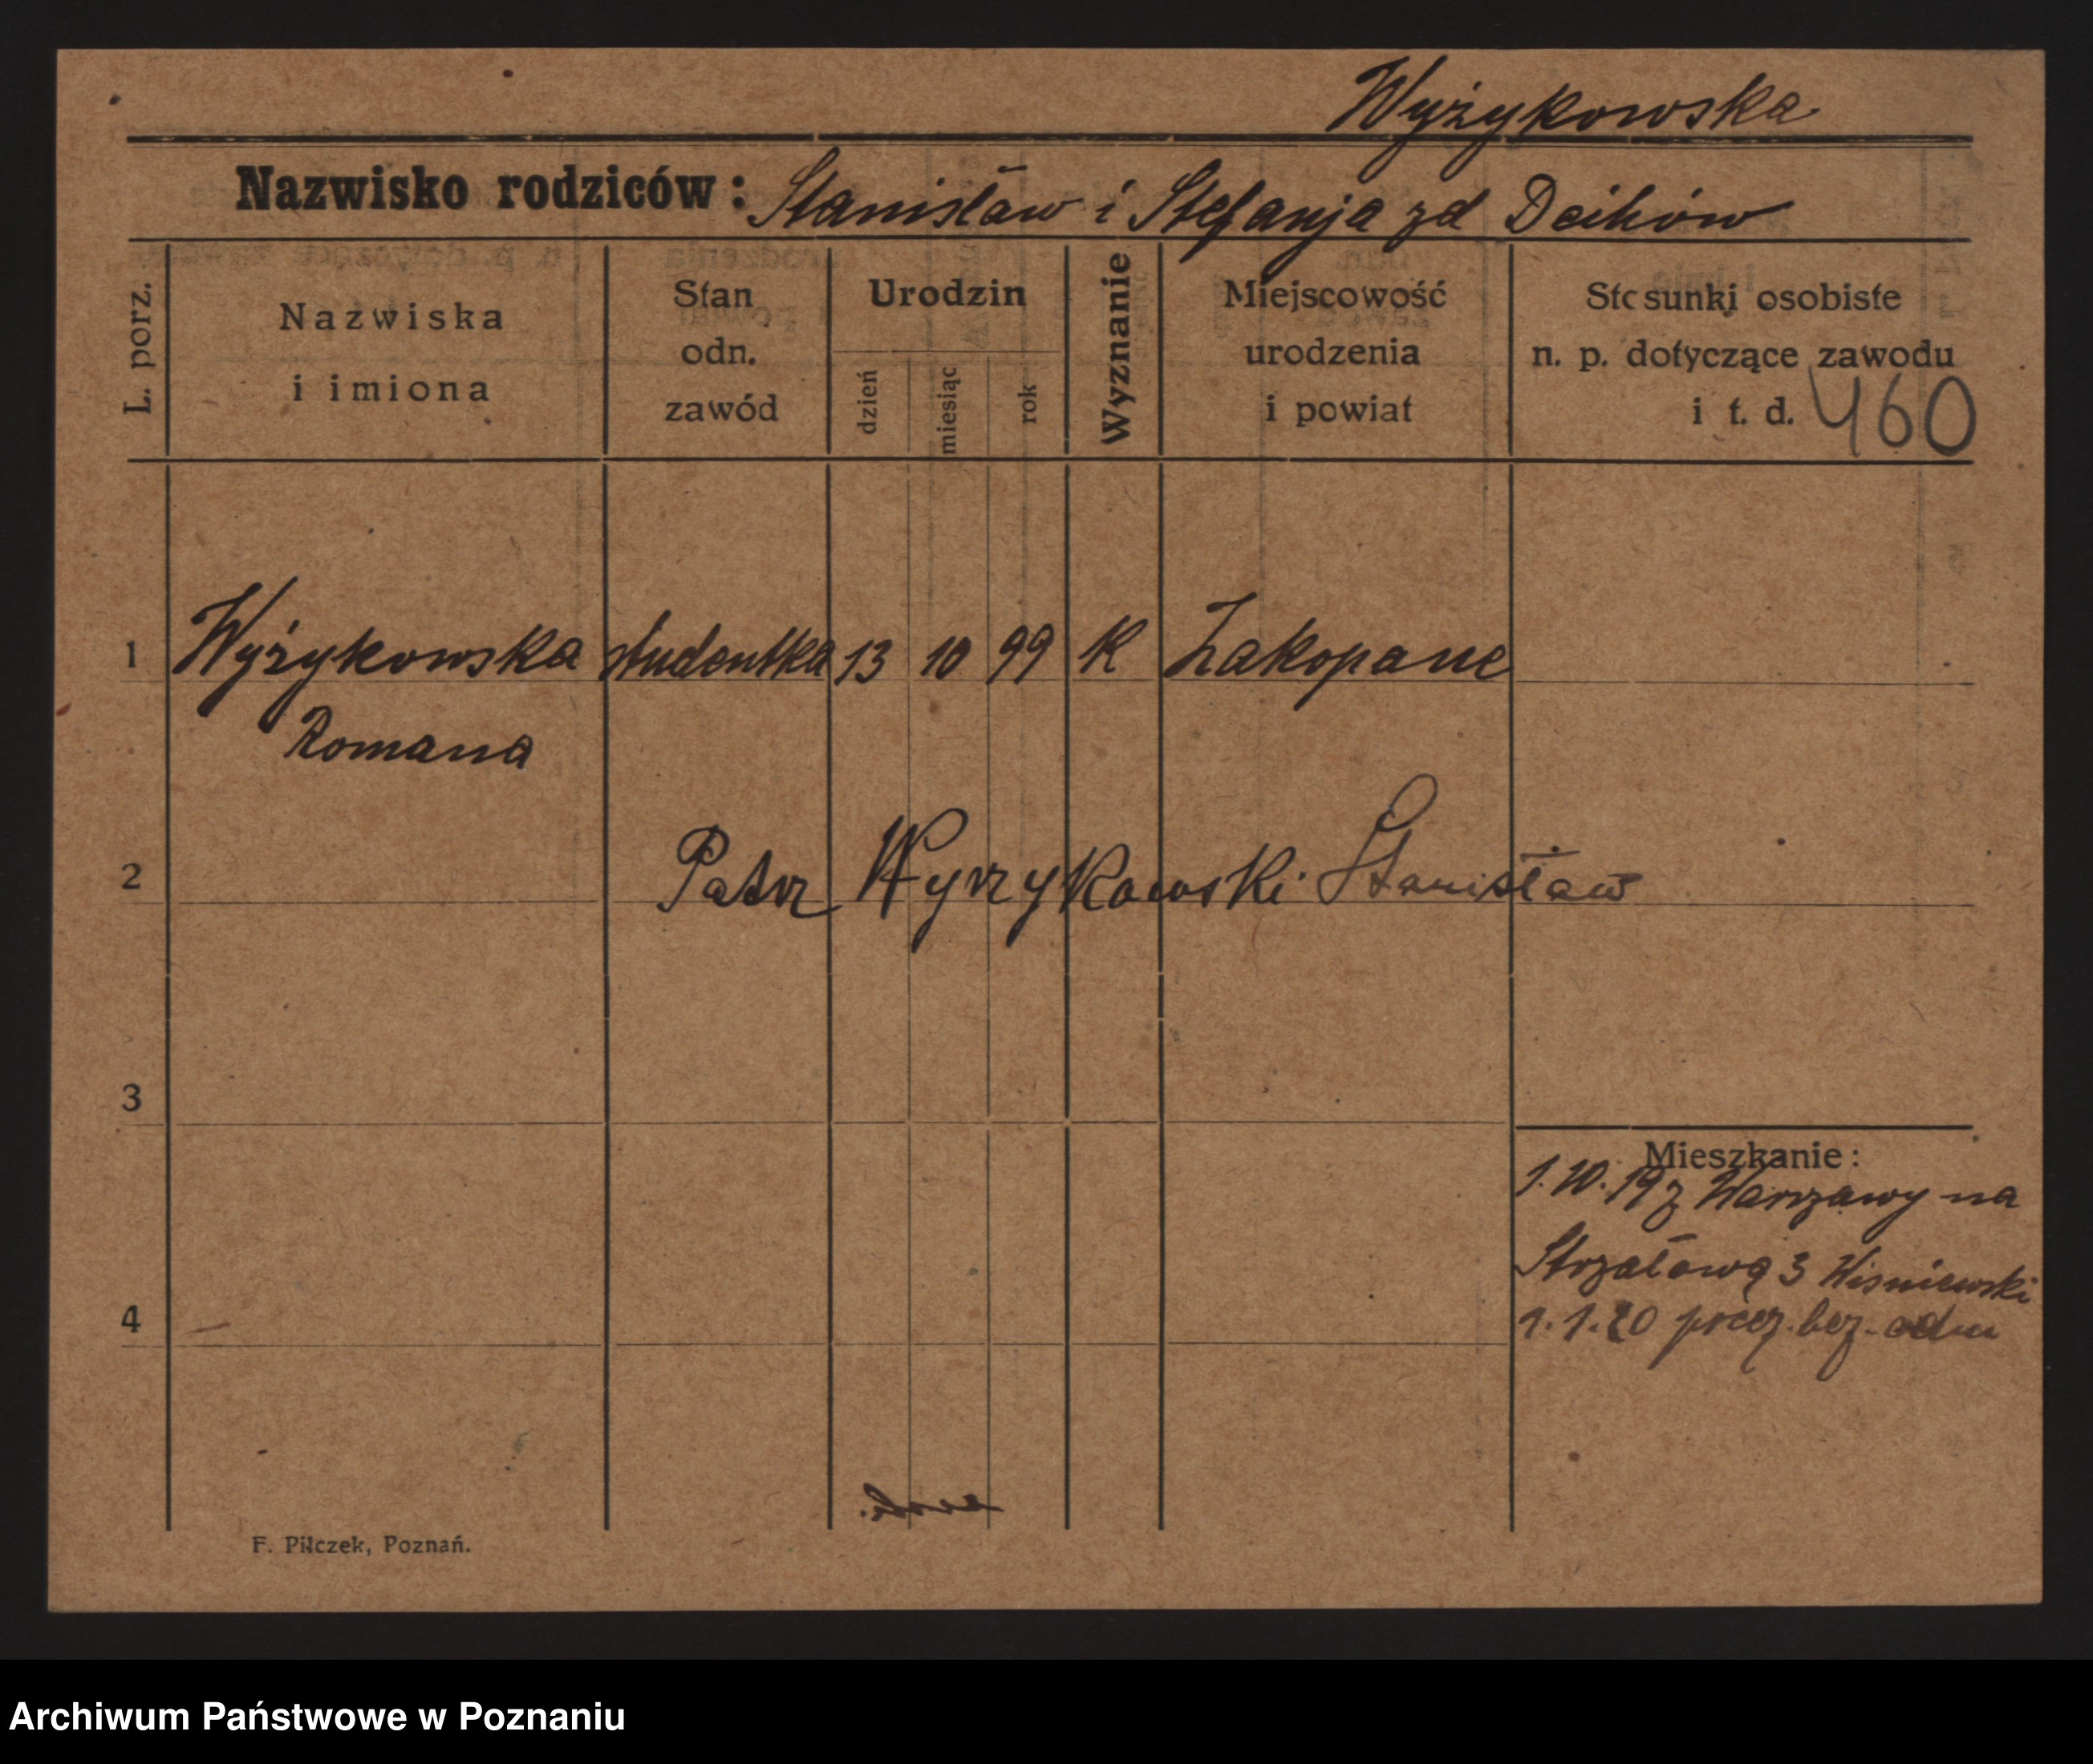 Wyżykowska
Nazwisko rodziców: Stanisław i Stefanja zd Deihów
L. porz.
Nazwiska
i imiona
Stan
odn.
zawód
Urodzin
dzień
miesiąc
rok
Wyznanie
Miejscowość
urodzenia
i powiat
Stosunki osobiste
n. p. dotyczące zawodu
i t. d. 460
1 Wyżykowska studentka 13 10 99 K Zakopane
Romana
2 Patrz Wyrzykowski Stanisław
3
Mieszkanie:
1.10.19 z Warszawy na
Strzałową 3 Wisniewski
4
1.1.20 bez odm
F. Pilczek, Poznań.
Archiwum Państwowe w Poznaniu